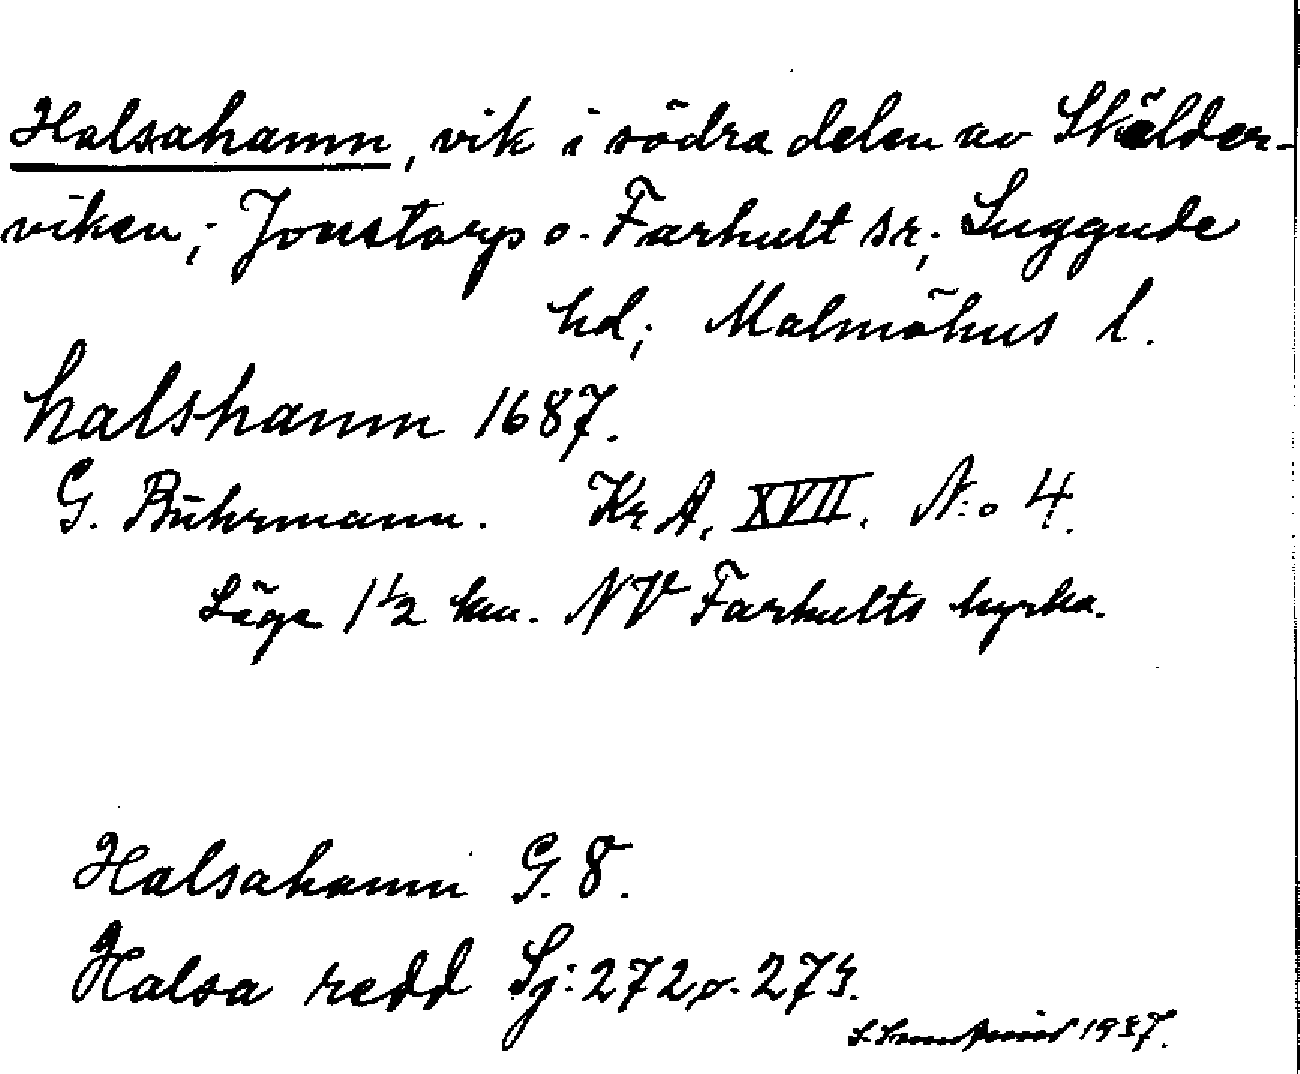 Halsahamn, vik i södra delen av Skälder-
viken; Jonstorp o. Farhult sr; Luggude
hd; Malmöhus l.
halshamn 1687.
G. Buhrmann. Kr A, XVII. N:o 4.
Läge 1 1/2 km. NV Farhults kyrka.
Halsahamn G. 8.
Halsa redd Sj: 272 o. 275.
1937.